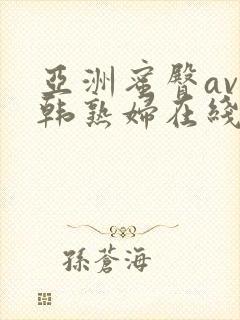 亞洲蜜臀av
韩熟婦在綫
孫蒼海